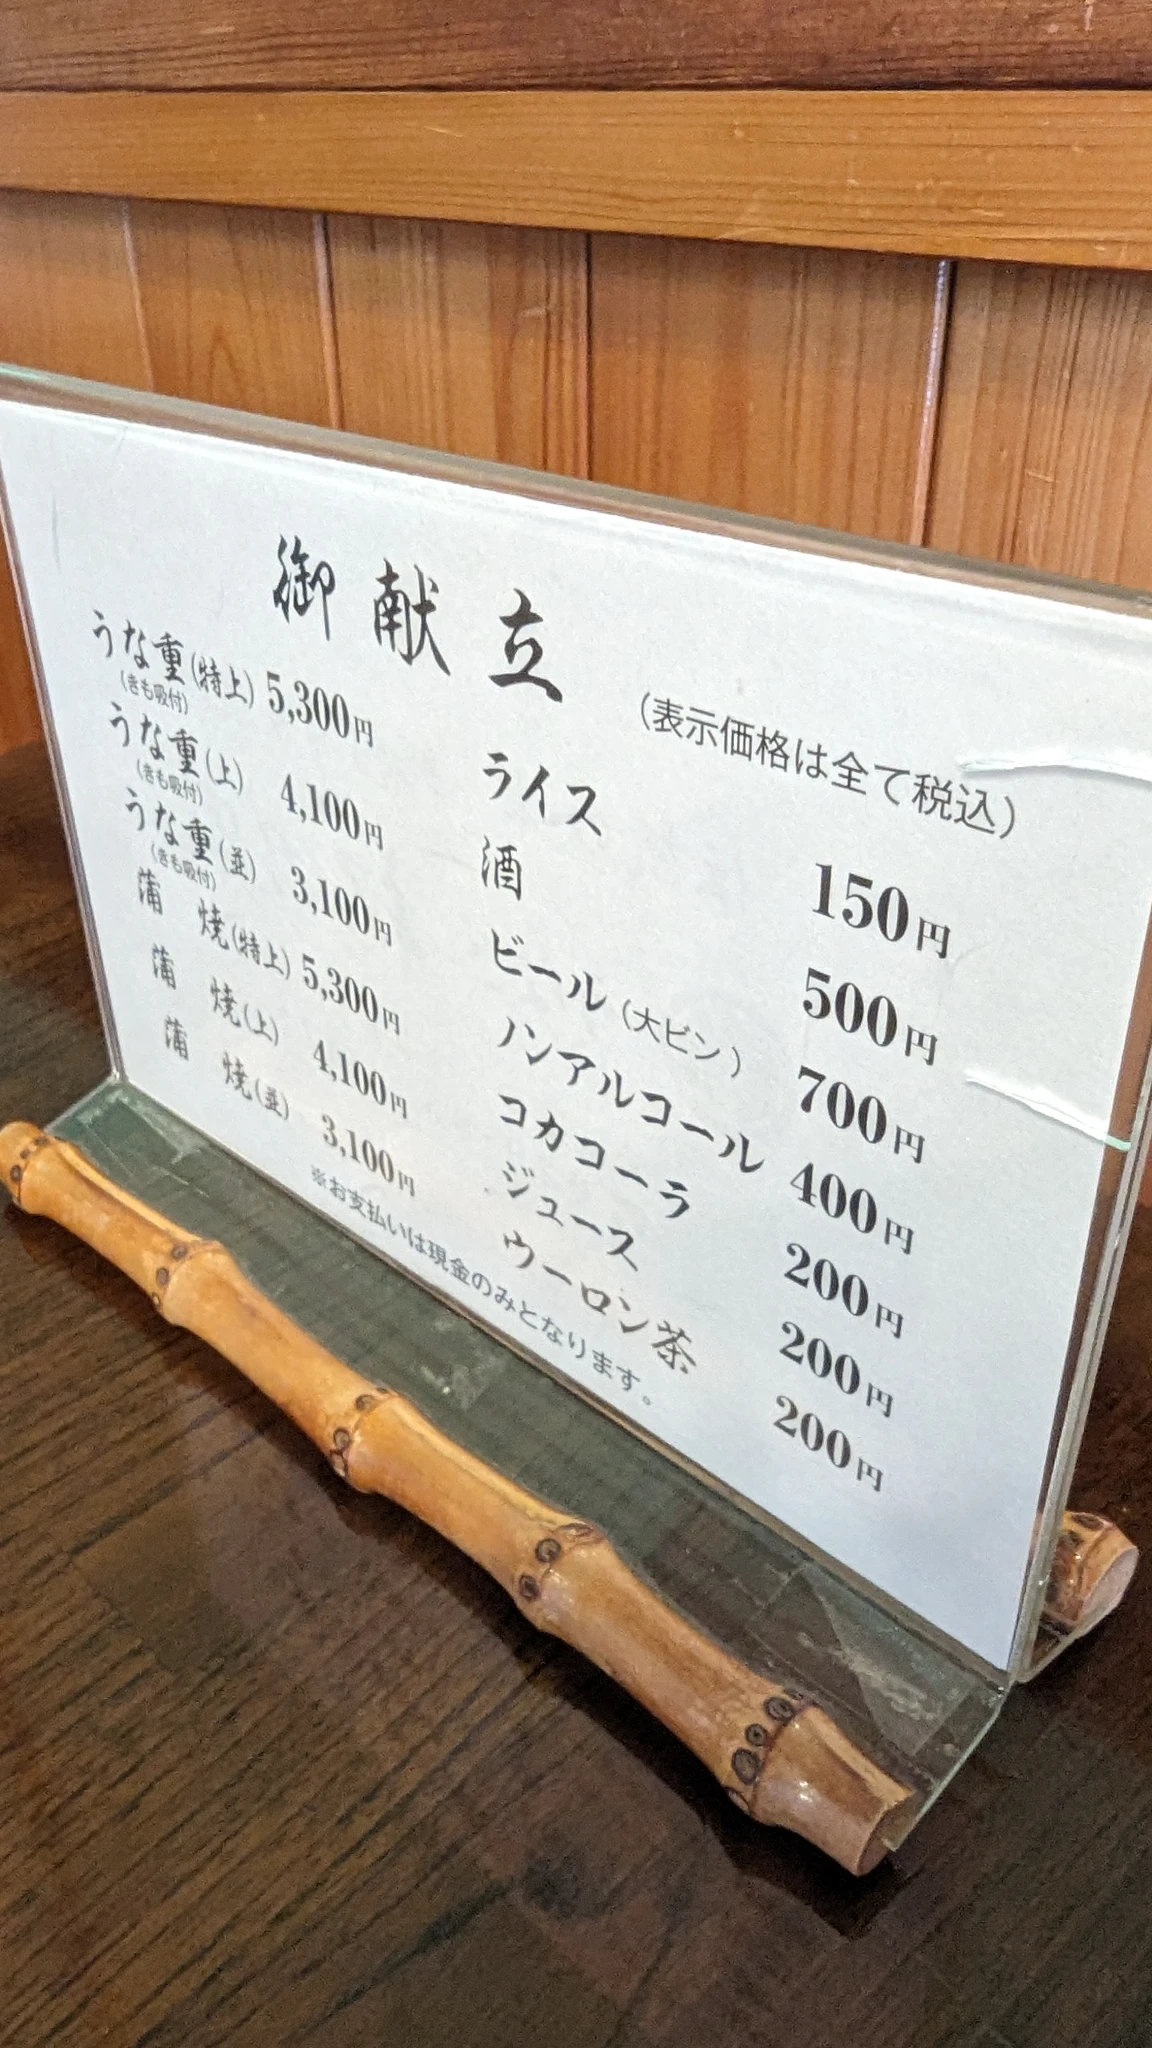 御献立
(表示価格は全て税込)
うな重(特上) 5,300円
(きも吸付)
うな重(上) 4,100円
(きも吸付)
うな重(並) 3,100円
(きも吸付)
蒲焼(特上) 5,300円
蒲焼(上) 4,100円
蒲焼(並) 3,100円
ライス 150円
酒 500円
ビール(大ビン) 700円
ノンアルコール 400円
コカコーラ 200円
ジュース 200円
ウーロン茶 200円
※お支払いは現金のみとなります。